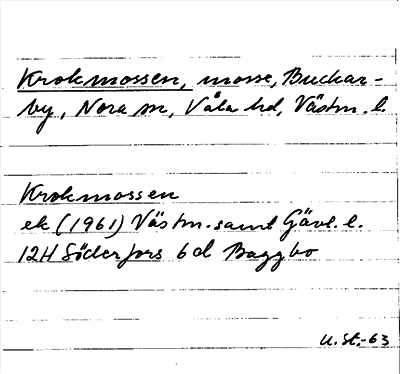 Krokmossen, mosse, Buckar-
by, Nora sn, Våla hd, Västm. l.
Krokmossen
ek (1961) Västm. samt Gävl. l.
12H Söderfors 6d Baggbo
U.St.-63